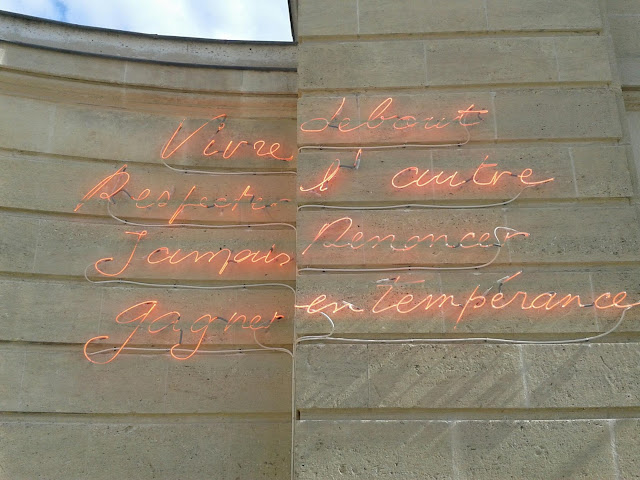 Vivre debout
Respecter l'autre
Jamais Renoncer
gagner en tempérance